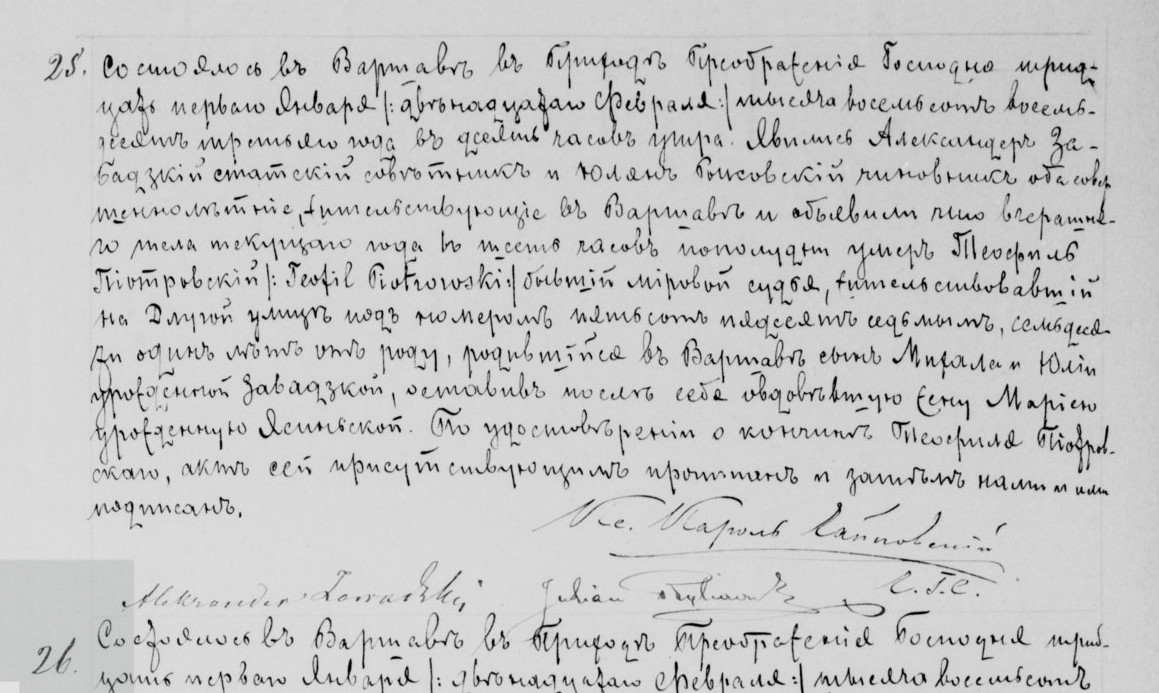 25. Состоялось въ Варшавѣ въ Приходѣ Преображенія Господня трид-
цать перваго Января /: двѣнадцатаго Февраля :/ тысяча восемьсотъ восемь-
десятъ третьяго года въ десять часовъ утра. Явились Александеръ За-
вадзкій статскій совѣтникъ и Юліанъ чиновникъ оба совер
шеннолѣтніе, жительствующіе въ Варшавѣ и объявили что вчерашня-
го числа текущаго года въ шесть часовъ пополудни умеръ Теофиль
Піотровскій /: Teofil Piotrowski :/ бывшій мировой судья, жительствовавшій
на Длугой улицѣ подъ номеромъ пятьсотъ пядесятъ седьмымъ, семьдеся-
ти одинъ лѣтъ отъ роду, родившійся въ Варшавѣ сынъ Михала и Юліи
урожденной Завадзкой, оставивъ послѣ себя овдовѣвшую жену Марію
урожденную Ясиньской. По удостовѣреніи о кончинѣ Теофиля Піотров-
скаго, актъ сей присутствующимъ прочитанъ и затѣмъ нами и ими
подписанъ.
Кс. Кароль
Aleksander Zawadzki Julian С.Г.С.
26. Состоялось въ Варшавѣ въ Приходѣ Преображенія Господня трид-
цать перваго Января /: двѣнадцатаго Февраля :/ тысяча восемьсотъ